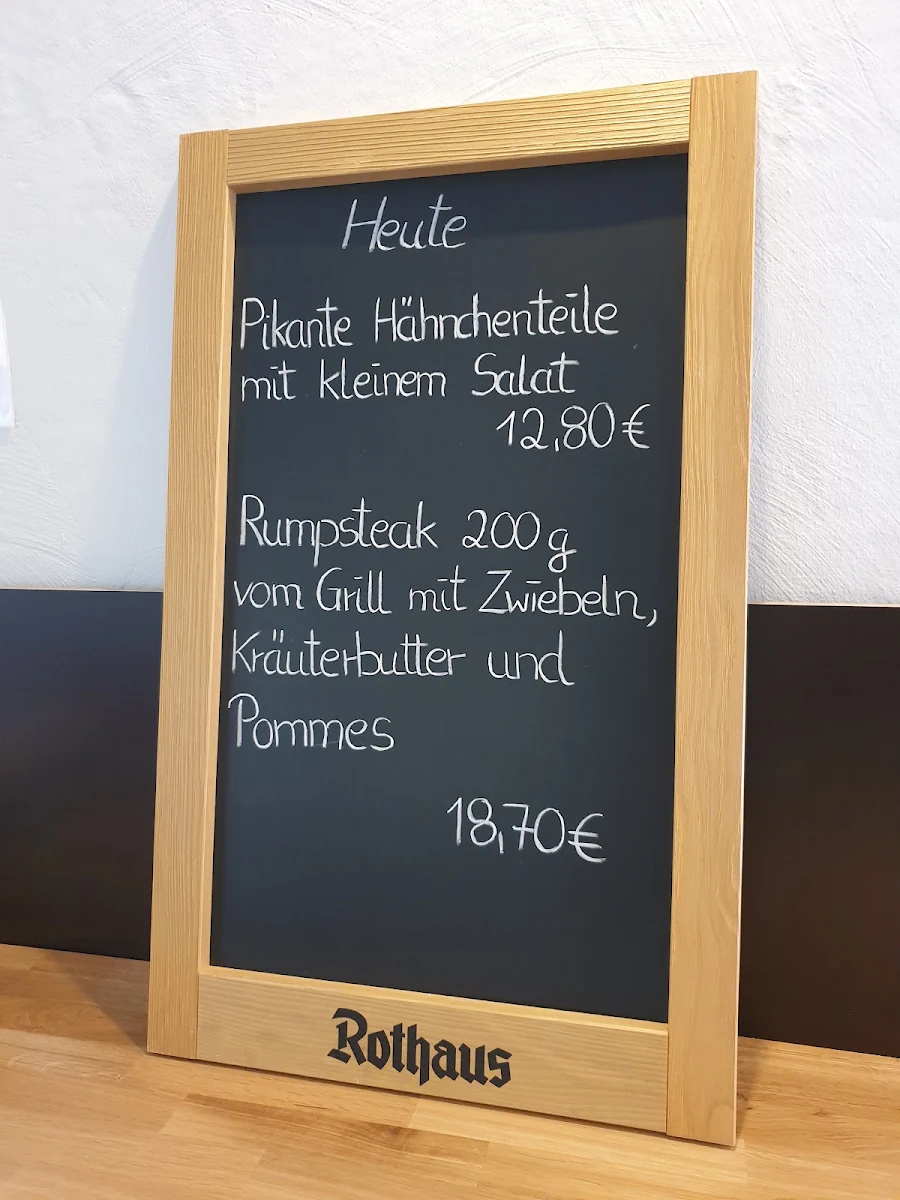 Heute
Pikante Hähnchenteile
mit kleinem Salat
12,80€
Rumpsteak 200g
vom Grill mit Zwiebeln,
Kräuterbutter und
Pommes
18,70€
Rothaus